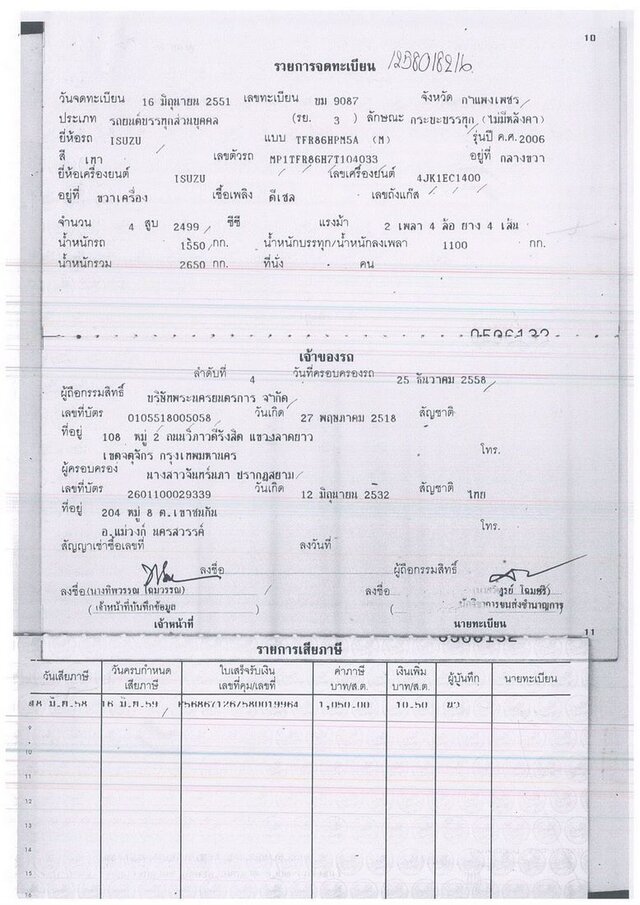 10
รายการจดทะเบียน 1258018216
วันจดทะเบียน 16 มิถุนายน 2551 เลขทะเบียน ขม 9087 จังหวัด กำแพงเพชร
ประเภท รถยนต์บรรทุกส่วนบุคคล (รย. 3 ) ลักษณะ กระบะบรรทุก (ไม่มีหลังคา)
ยี่ห้อรถ ISUZU แบบ TFR86HPM5A (M) รุ่นปี ค.ศ. 2006
สี เทา เลขตัวรถ MP1TFR86H7T104033 อยู่ที่ กลางขวา
ยี่ห้อเครื่องยนต์ ISUZU เลขเครื่องยนต์ 4JK1EC1400
อยู่ที่ ขวาเครื่อง เชื้อเพลิง ดีเซล เลขถังแก๊ส
จำนวน 4 สูบ 2499 ซีซี แรงม้า 2 เพลา 4 ล้อ ยาง 4 เส้น
น้ำหนักรถ 1550 กก. น้ำหนักบรรทุก/น้ำหนักลงเพลา 1100 กก.
น้ำหนักรวม 2650 กก. ที่นั่ง คน
0506132
เจ้าของรถ
ลำดับที่ 4 วันที่ครอบครองรถ 25 ธันวาคม 2558
ผู้ถือกรรมสิทธิ์ บริษัทพระนครยนตรการ จำกัด
เลขที่บัตร 0105518005058 วันเกิด 27 พฤษภาคม 2518 สัญชาติ
ที่อยู่ 108 หมู่ 2 ถนนวิภาวดีรังสิต แขวงลาดยาว
เขตจตุจักร กรุงเทพมหานคร โทร.
ผู้ครอบครอง นางสาวจันทร์นภา ปรากฏสยาม
เลขที่บัตร 2601100029339 วันเกิด 12 มิถุนายน 2532 สัญชาติ ไทย
ที่อยู่ 204 หมู่ 8 ต.เขาชนกัน
อ.แม่วงก์ นครสวรรค์ โทร.
สัญญาเช่าซื้อเลขที่ ลงวันที่
ลงชื่อ ผู้ถือกรรมสิทธิ์
ลงชื่อ (นางทิพวรรณ โฉมวรรณ) ลงชื่อ โฉมศรี)
( เจ้าหน้าที่บันทึกข้อมูล ) ( นักวิชาการขนส่งชำนาญการ )
เจ้าหน้าที่ นายทะเบียน
0506132 11
รายการเสียภาษี
วันเสียภาษี วันครบกำหนดเสียภาษี ใบเสร็จรับเงิน เลขที่คุม/เลขที่ ค่าภาษี บาท/ส.ต. เงินเพิ่ม บาท/ส.ต. ผู้บันทึก นายทะเบียน
16 มิ.ย.59 1,050.00 10.50
9
10
11
12
13
14
15
16